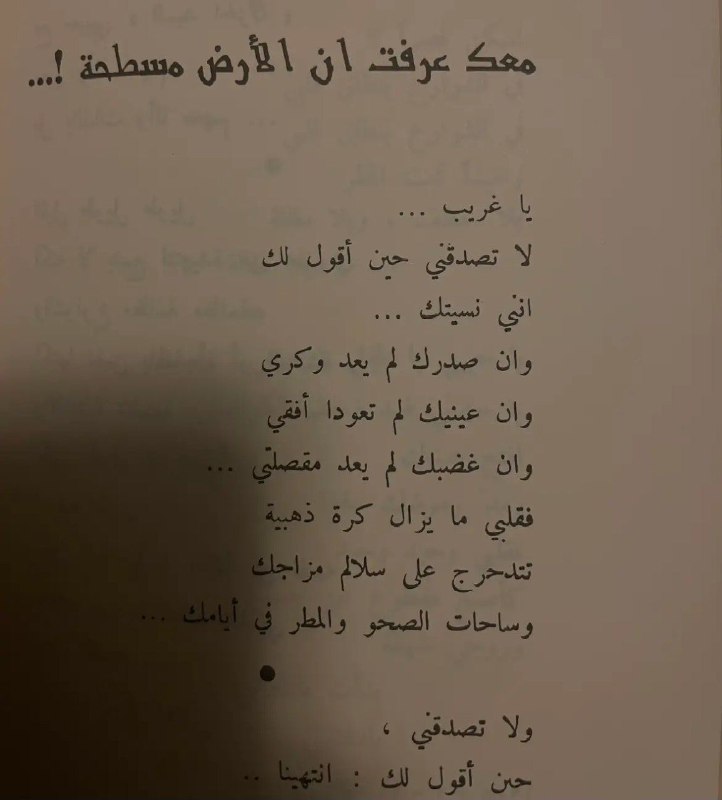 معك عرفت ان الأرض مسطحة !...
يا غريب ...
لا تصدقني حين أقول لك
انني نسيتك ...
وان صدرك لم يعد وكري
وان عينيك لم تعودا أفقي
وان غضبك لم يعد مقصلتي ...
فقلبي ما يزال كرة ذهبية
تتدحرج على سلالم مزاجك
وساحات الصحو والمطر في أيامك ...
●
ولا تصدقني ،
حين أقول لك : انتهينا ..